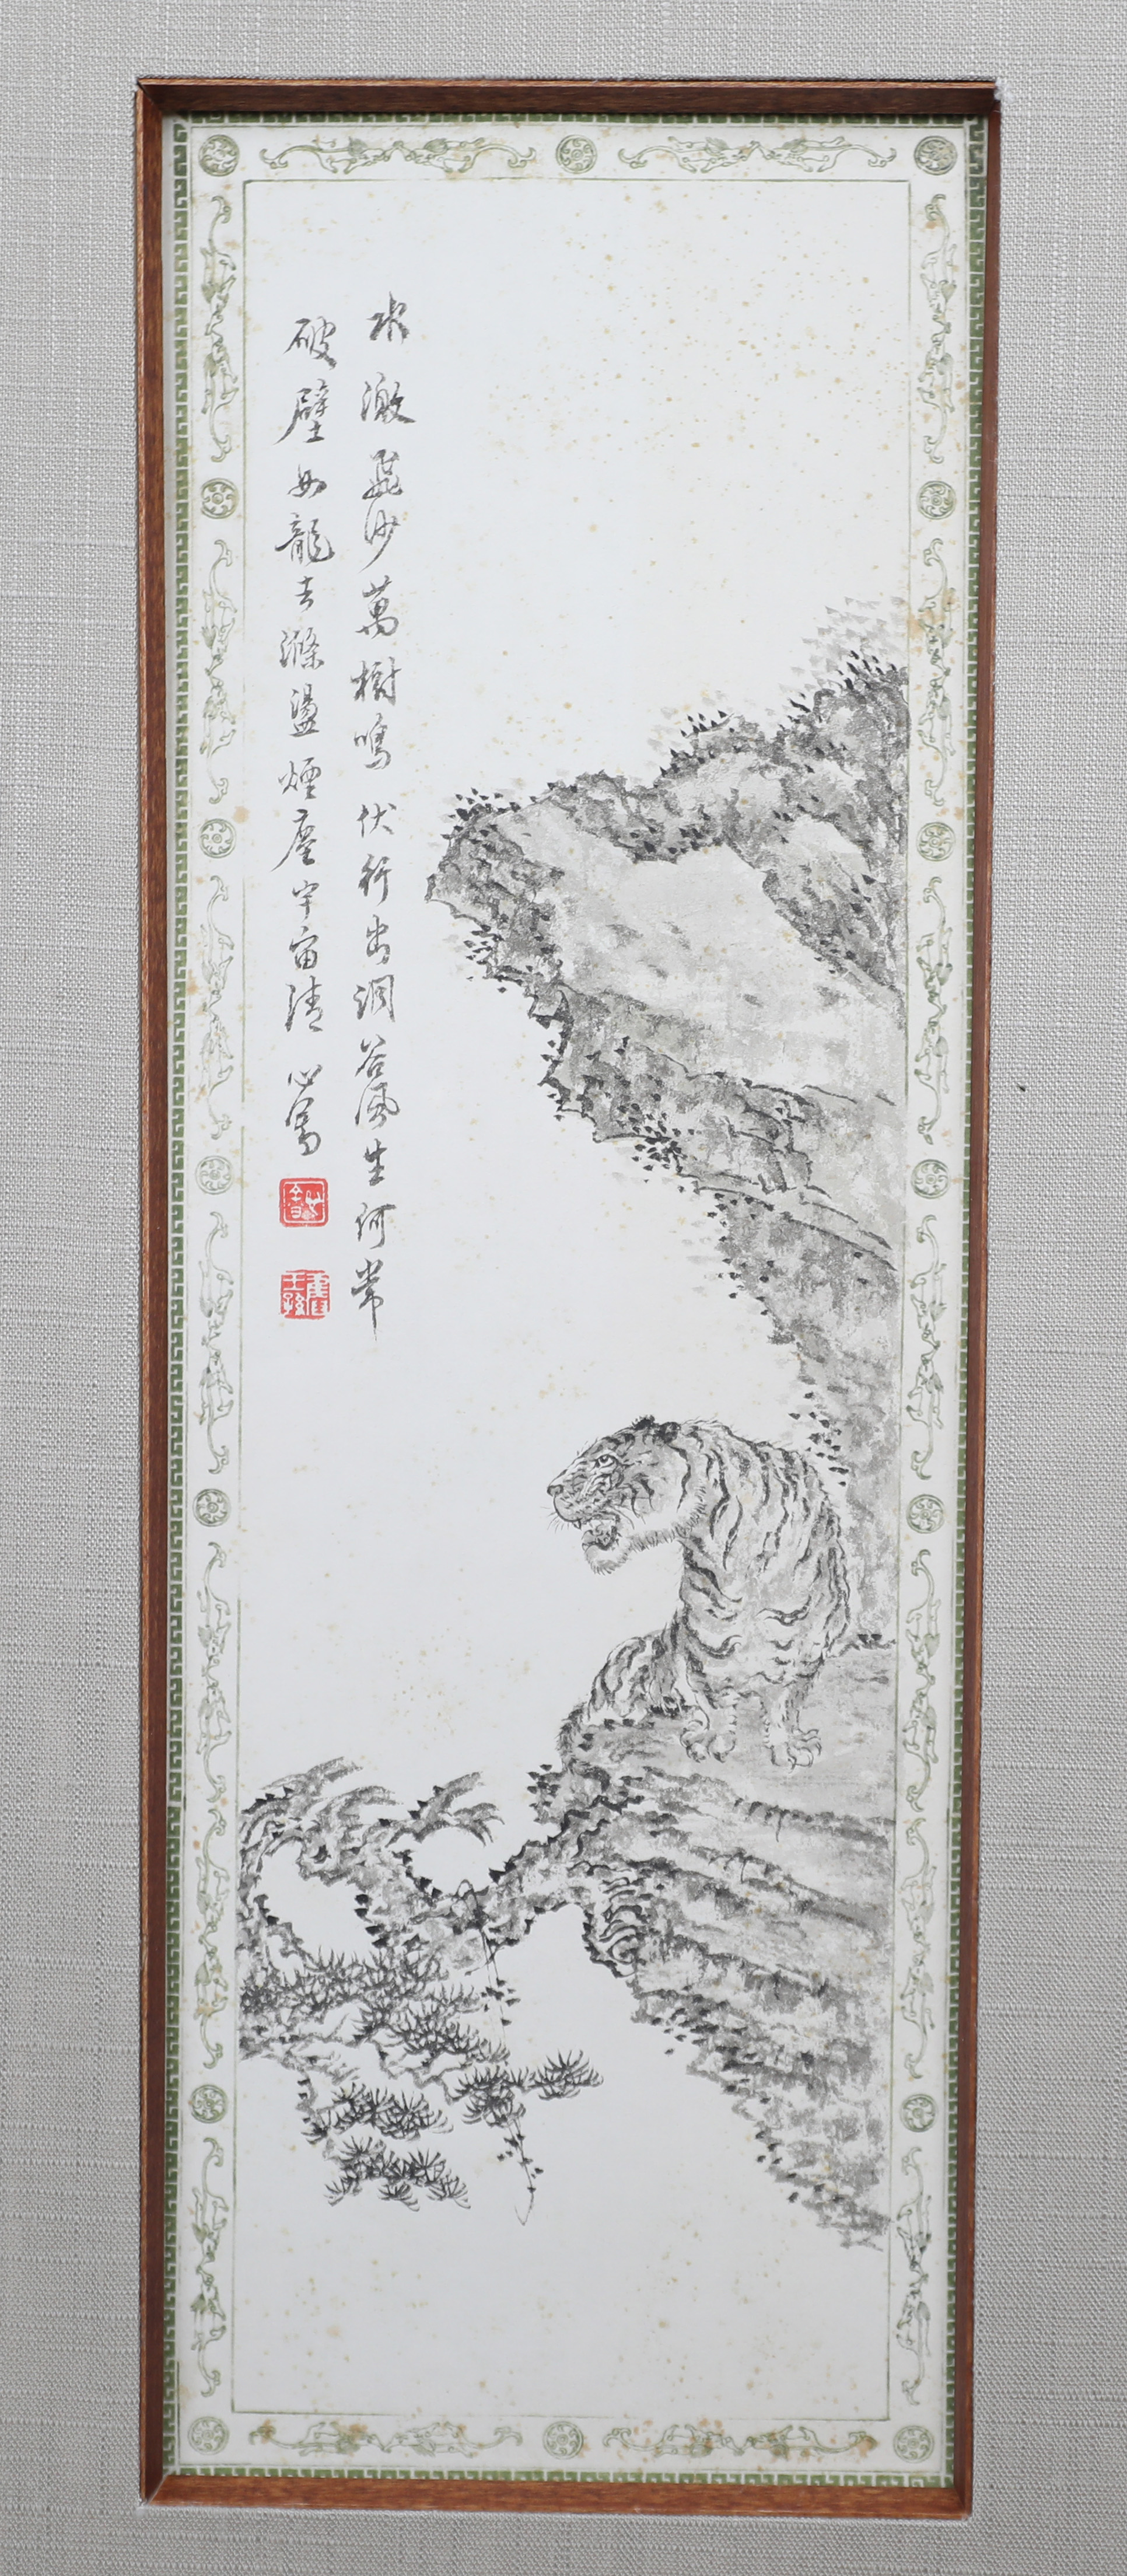 水激飛沙萬樹鳴伏行出澗谷風生何常
破壁如龍去滌盪煙塵宇宙清 心畬
舊王孫